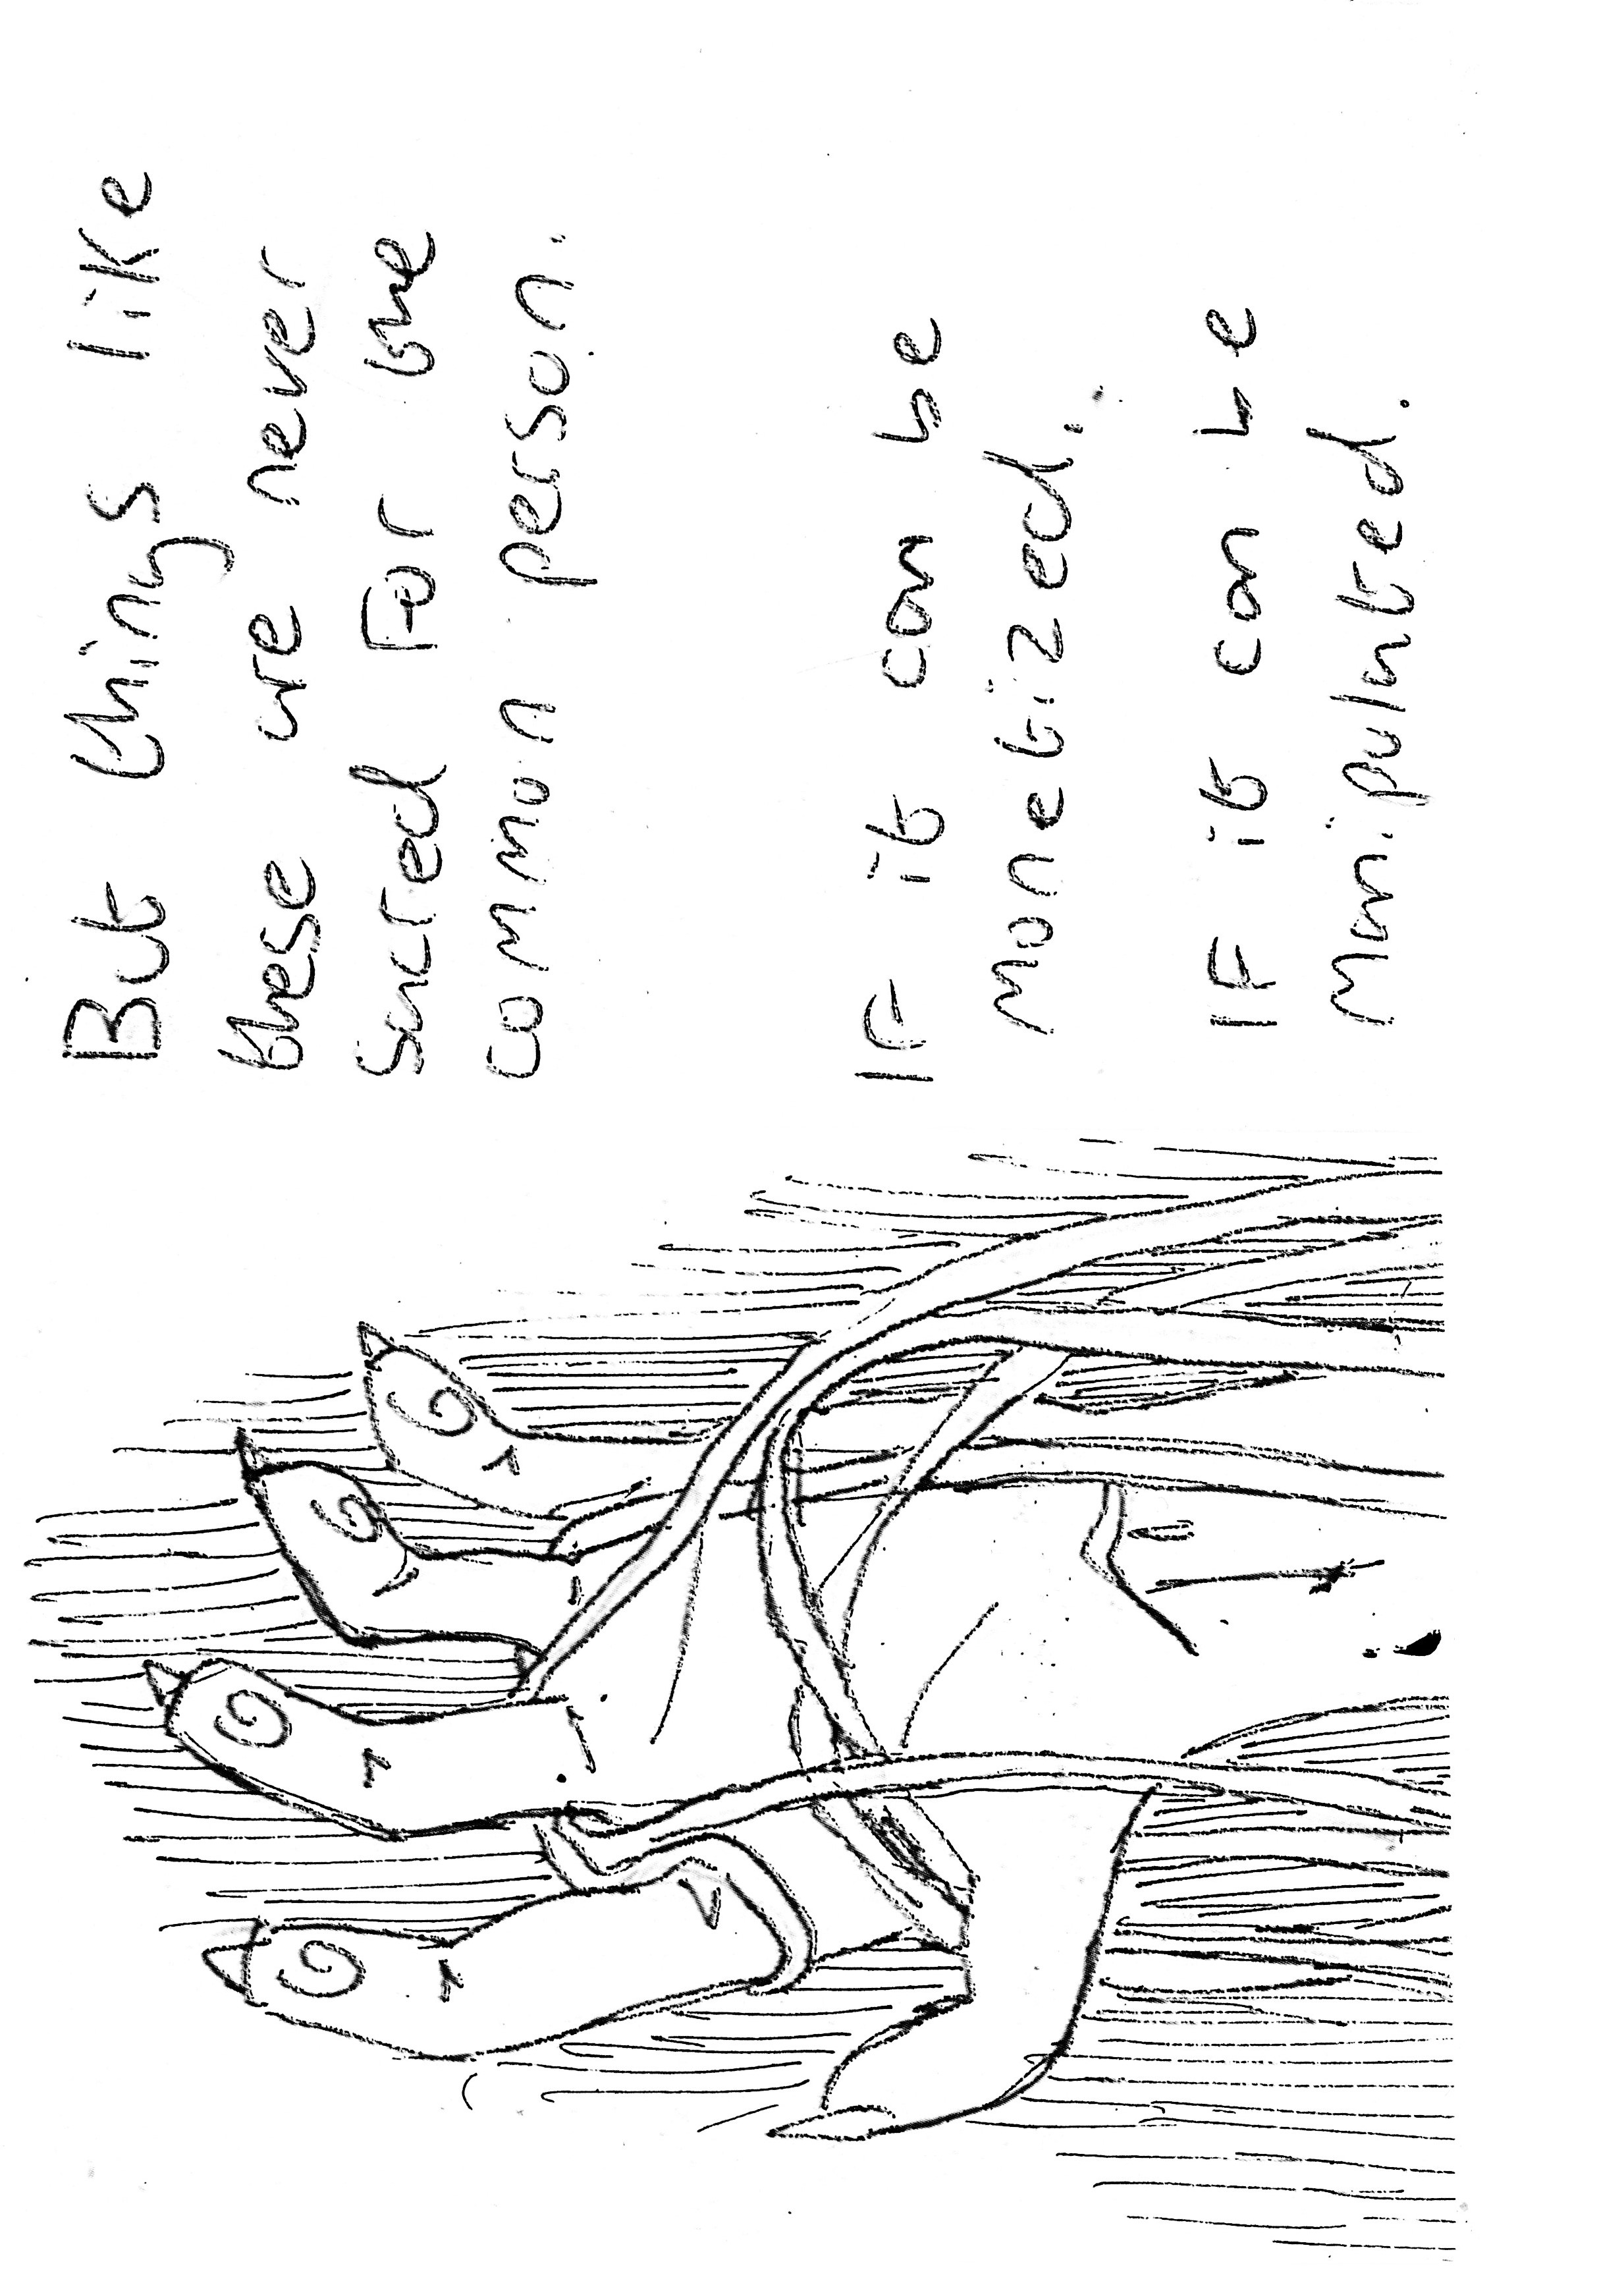 But things like
these are never
sacred For the
common person.
IF it can be
monetized.
IF it can be
manipulated.